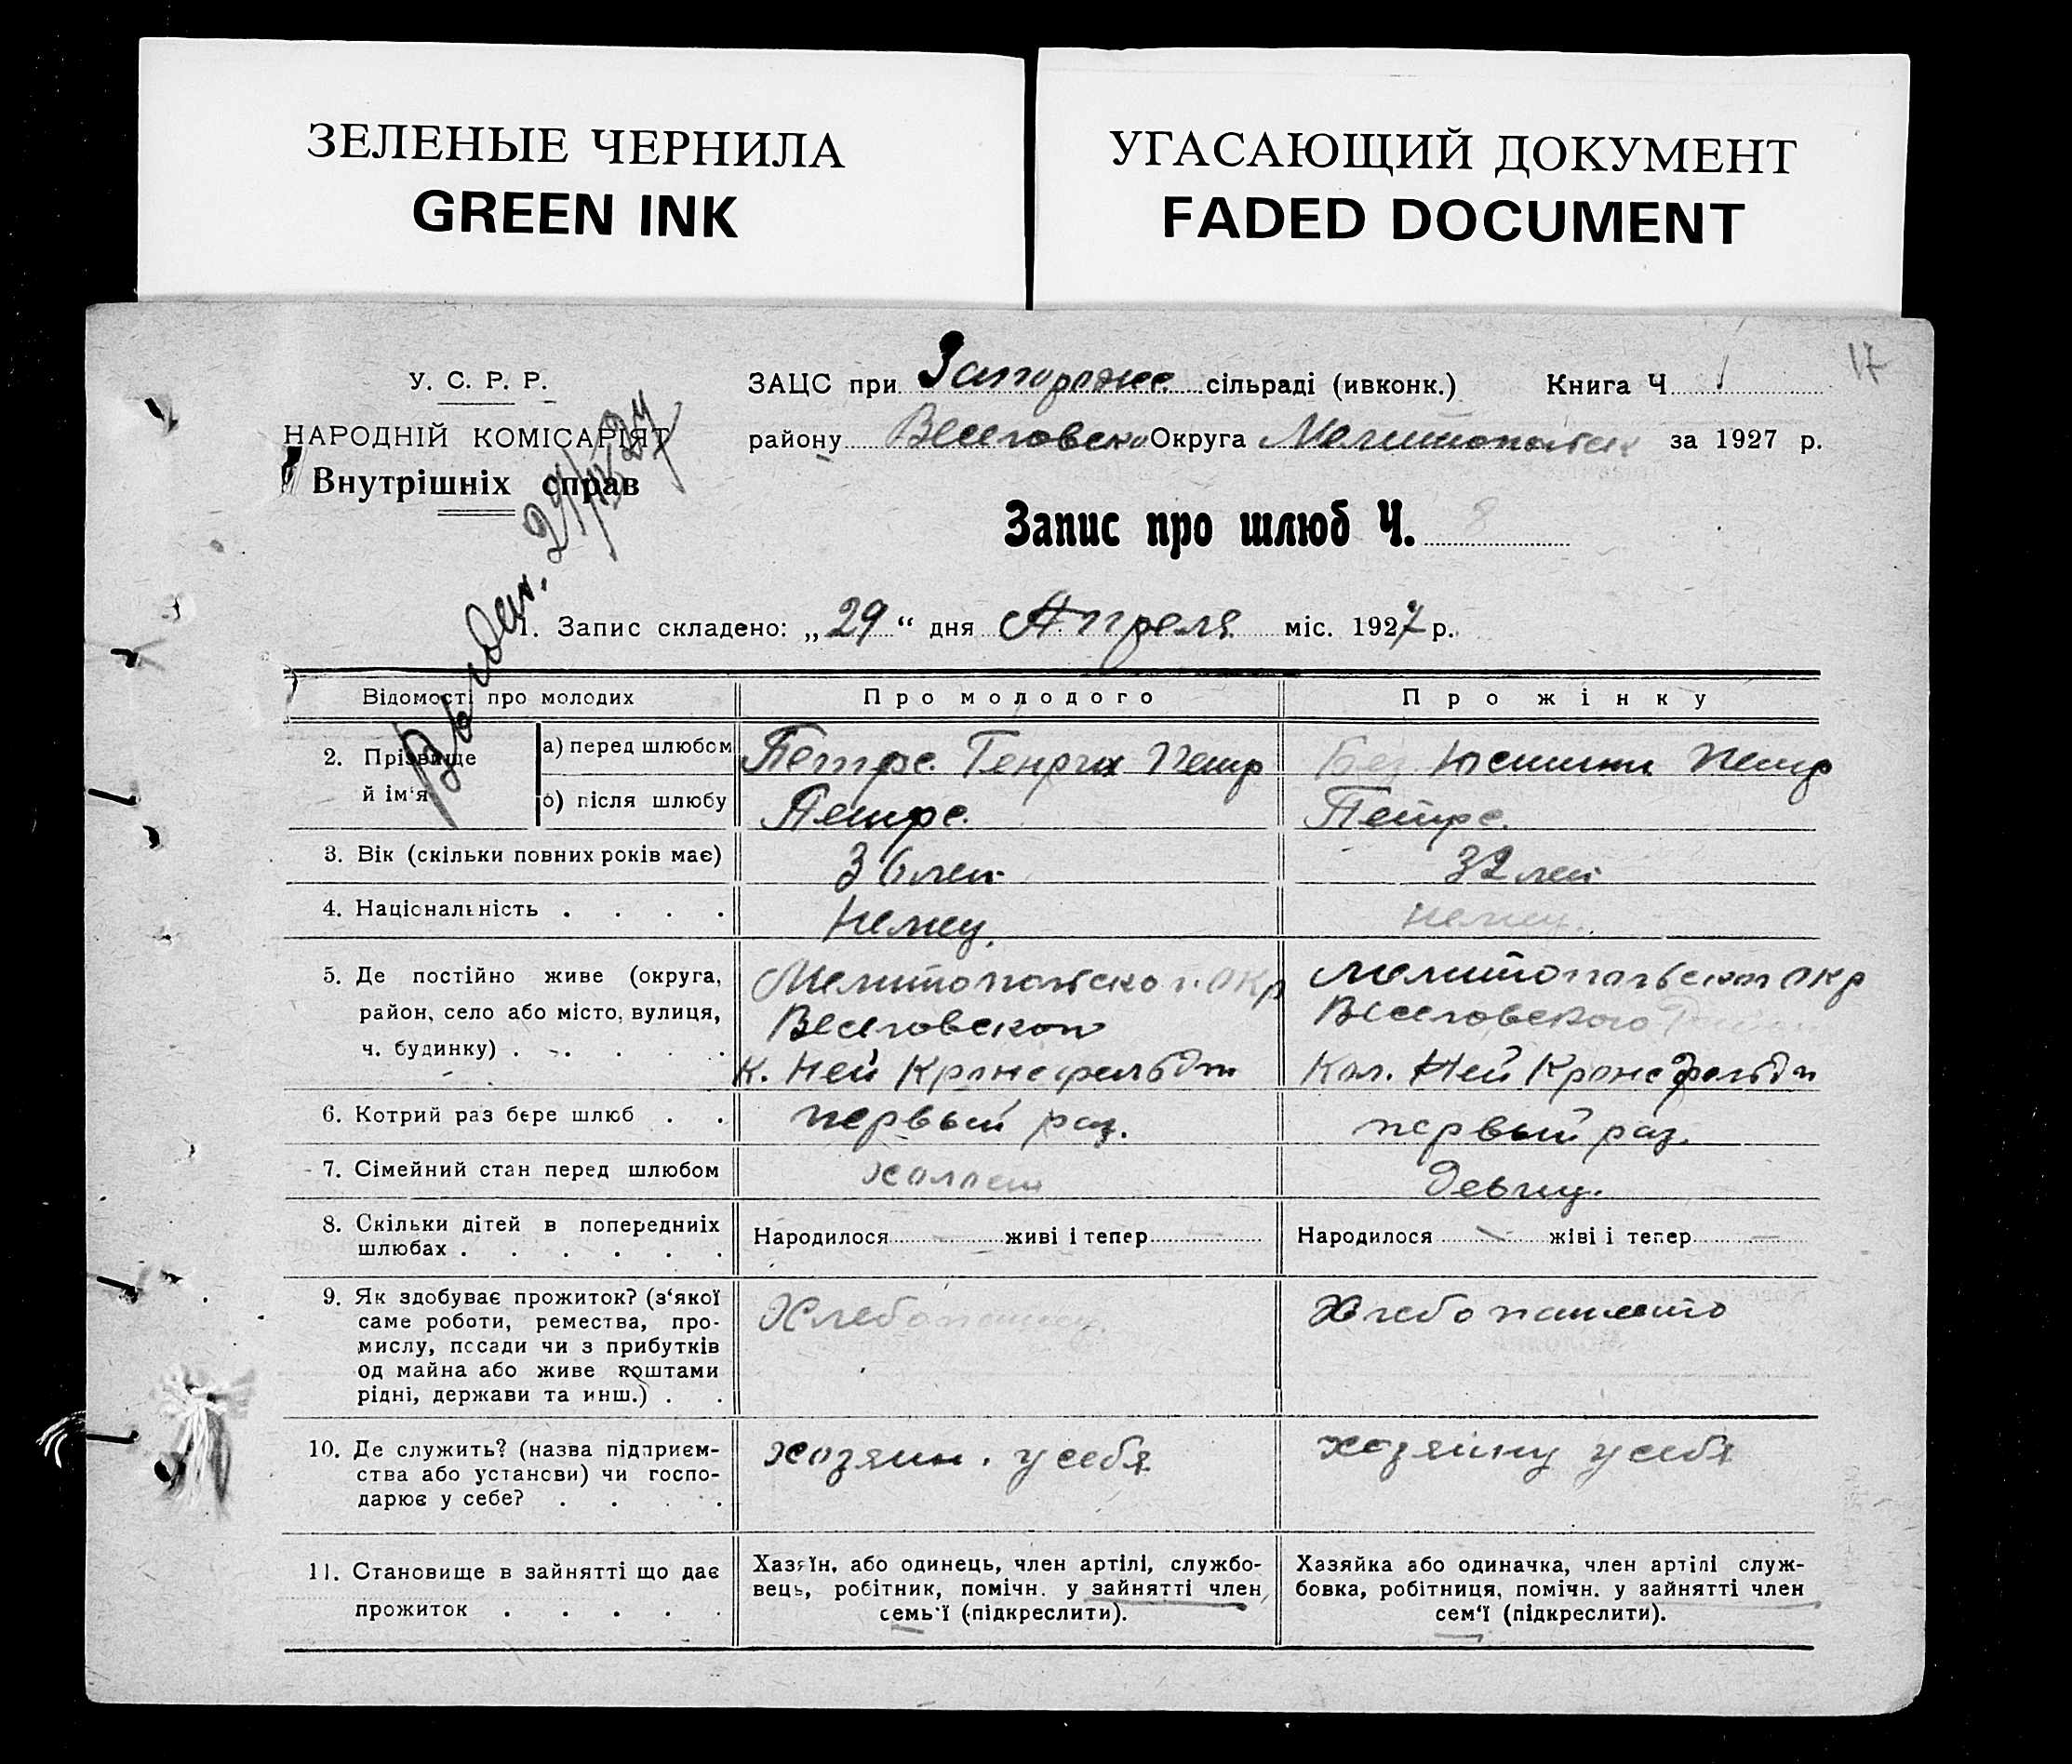 ЗЕЛЕНЫЕ ЧЕРНИЛА
GREEN INK
УГАСАЮЩИЙ ДОКУМЕНТ
FADED DOCUMENT
17
У. С. Р. Р.
НАРОДНІЙ КОМІСАРІЯТ
Внутрішніх справ
ЗАЦС при сільраді (ивконк.) Книга Ч
району Округа за 1927 р.
Запис про шлюб Ч. 8
1. Запис складено: „29“ дня Апреля міс. 1927 р.
Відомості про молодих
Про молодого
Про жінку
2. Прізвище й ім'я
а) перед шлюбом
Петрс. Генрих Петр
Юстини Петр
б) після шлюбу
Петрс.
Петрс.
3. Вік (скільки повних років має)
36 лет
32 лет
4. Національність . . . .
Немец.
немец.
5. Де постійно живе (округа,
район, село або місто, вулиця,
ч. будинку) . . . . .
Мелитопольско г. Окр
Веселовском
к. Ней Кронсфельдт
Мелитопольском Окр
Веселовского
Кол. Ней Кронсфельдт
6. Котрий раз бере шлюб . .
первый раз.
первый раз.
7. Сімейний стан перед шлюбом
холост
девиц.
8. Скільки дітей в попередниіх
шлюбах . . . . . .
Народилося — живі і тепер —
Народилося — жіві і тепер —
9. Як здобуває прожиток? (з'якої
саме роботи, ремества, про-
мислу, посади чи з прибутків
од майна або живе коштами
рідні, держави та инш.) . .
Хлебопашец.
Хлебопашество
10. Де служить? (назва підприєм-
ства або установи) чи госпо-
дарює у себе? . . . .
хозяин. у себя
хозяйну у себя
11. Становище в зайнятті що дає
прожиток . . . . .
Хазяїн, або одинець, член артілі, службо-
вець, робітник, помічн. у зайнятті член
семь'ї (підкреслити).
Хазяйка або одиначка, член артілі служ-
бовка, робітниця, помічн. у зайнятті член
сем'ї (підкреслити).